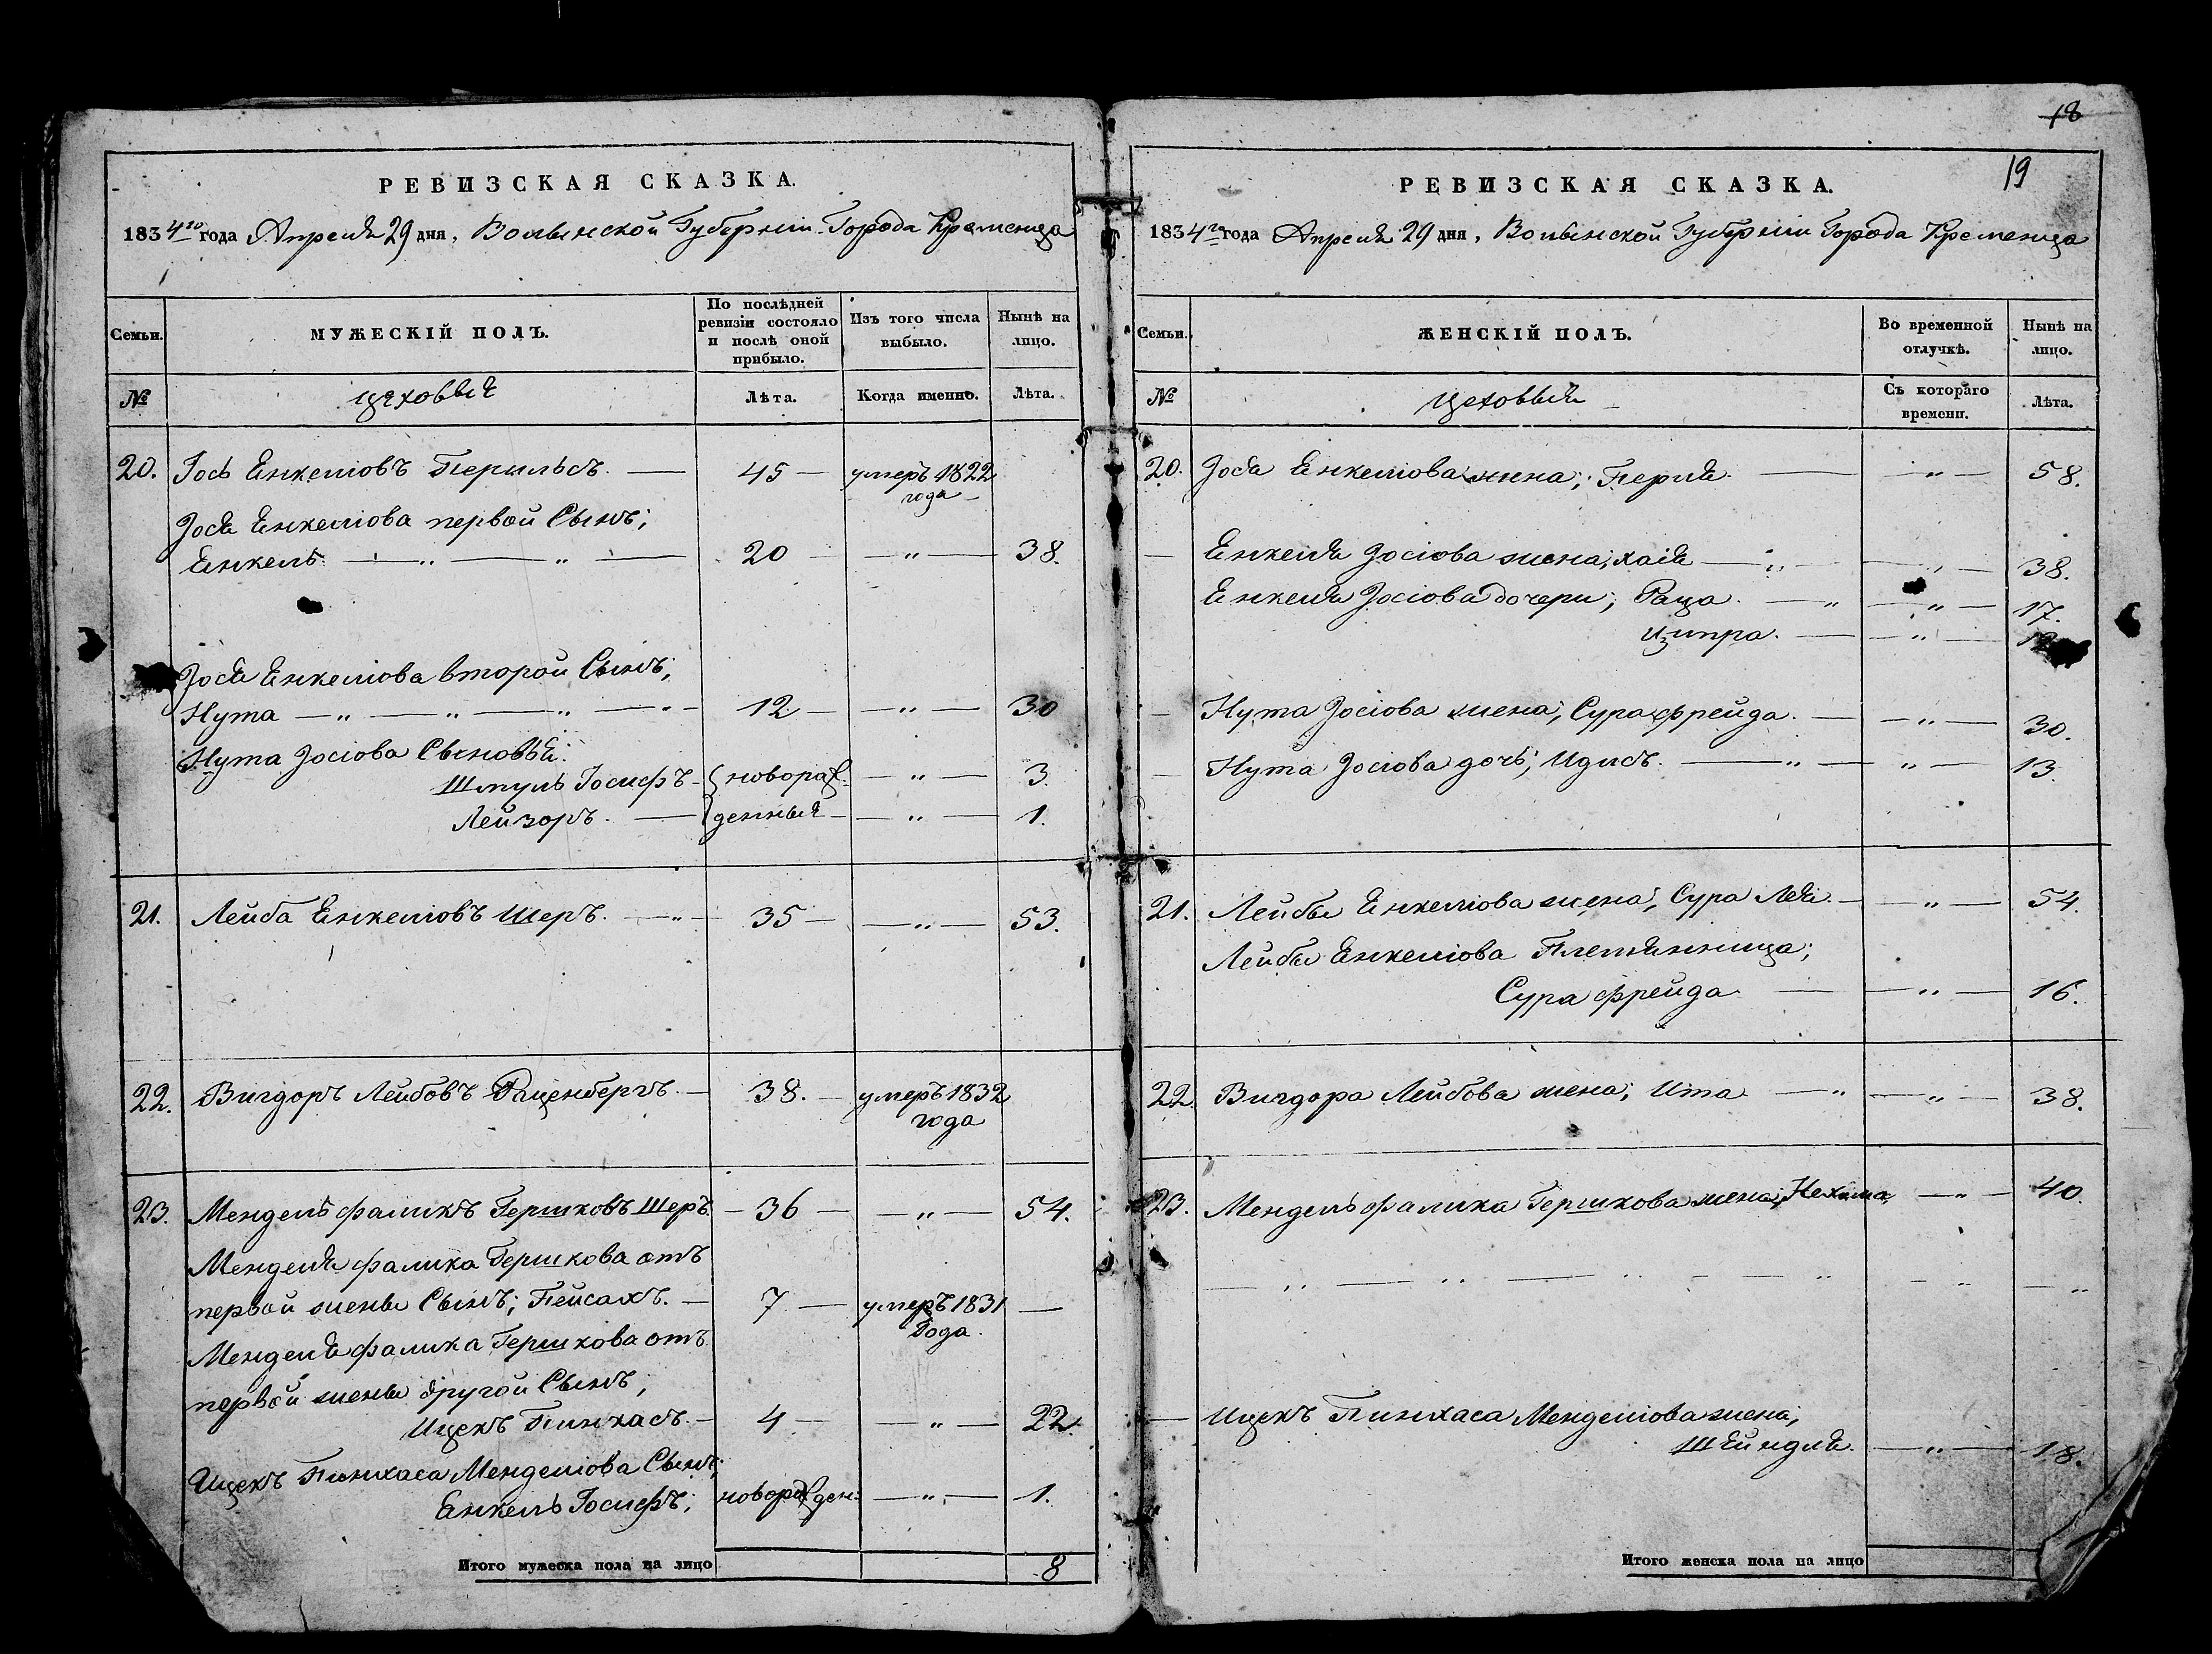 РЕВИЗСКАЯ СКАЗКА.
1834го года Апреля 29 дня, Волынской Губернiи Города Кременца
Семьи.
МУЖЕСКІЙ ПОЛЪ.
По послѣдней ревизіи состояло и послѣ оной прибыло.
Изъ того числа выбыло.
Нынѣ на лицо.
№
цеховыя
Лѣта.
Когда именно.
Лѣта.
20. Іось Енкелiовъ Перильсъ. 45 умеръ 1822
года
Iося Енкелiова первой Сынъ;
Енкель 20 " 38.
Iося Енкелiова второй Сынъ;
Нута 12 " 30
Нута Iосiова Сыновья:
Шмуль Iосифъ новораж- " 3.
Лейзоръ. денныя " 1.
21. Лейба Енкелiовъ Шеръ. 35 " 53.
22. Вигдоръ Лейбовъ Раценбергъ. 38. умеръ 1832
года
23. Мендель Фаликъ Гершковъ Шеръ. 36 " 54.
Менделя Фалика Гершкова отъ
первой жены Сынъ; Пейсахъ. 7 умеръ 1831
Года.
Менделя Фалика Гершкова отъ
первой жены другой Сынъ,
Ицекъ Пинхасъ. 4 " 22.
Ицекъ Пинхаса Менделiова Сынъ;
Енкель Iосифъ; новорожден: " 1.
Итого мужеска пола на лицо 8
18
19
РЕВИЗСКАЯ СКАЗКА.
1834го года Апреля 29 дня, Волынской Губернiи Города Кременца
Семьи.
ЖЕНСКІЙ ПОЛЪ.
Во временной отлучкѣ.
Нынѣ на лицо.
№
Цеховыя
Съ котораго времени.
Лѣта.
20. Iося Енкелiова жена; Перля. " 58.
Енкеля Iосiова жена; хая " 38.
Енкеля Iосiова дочери; Раца. " 17.
Ципра. "
Нута Iосiова жена; Сура фрейда. " 30.
Нута Iосiова дочь; Идись. " 13.
21. Лейбы Енкелiова жена; Сура Лея. " 54.
Лейбы Енкелiова Племянница;
Сура фрейда " 16.
22. Вигдора Лейбова жена; Ита " 38.
23. Мендель Фалика Гершкова жена; Нехама " 40.
Ицекъ Пинхаса Менделiова жена;
Шейндля. " 18.
Итого женска пола на лицо